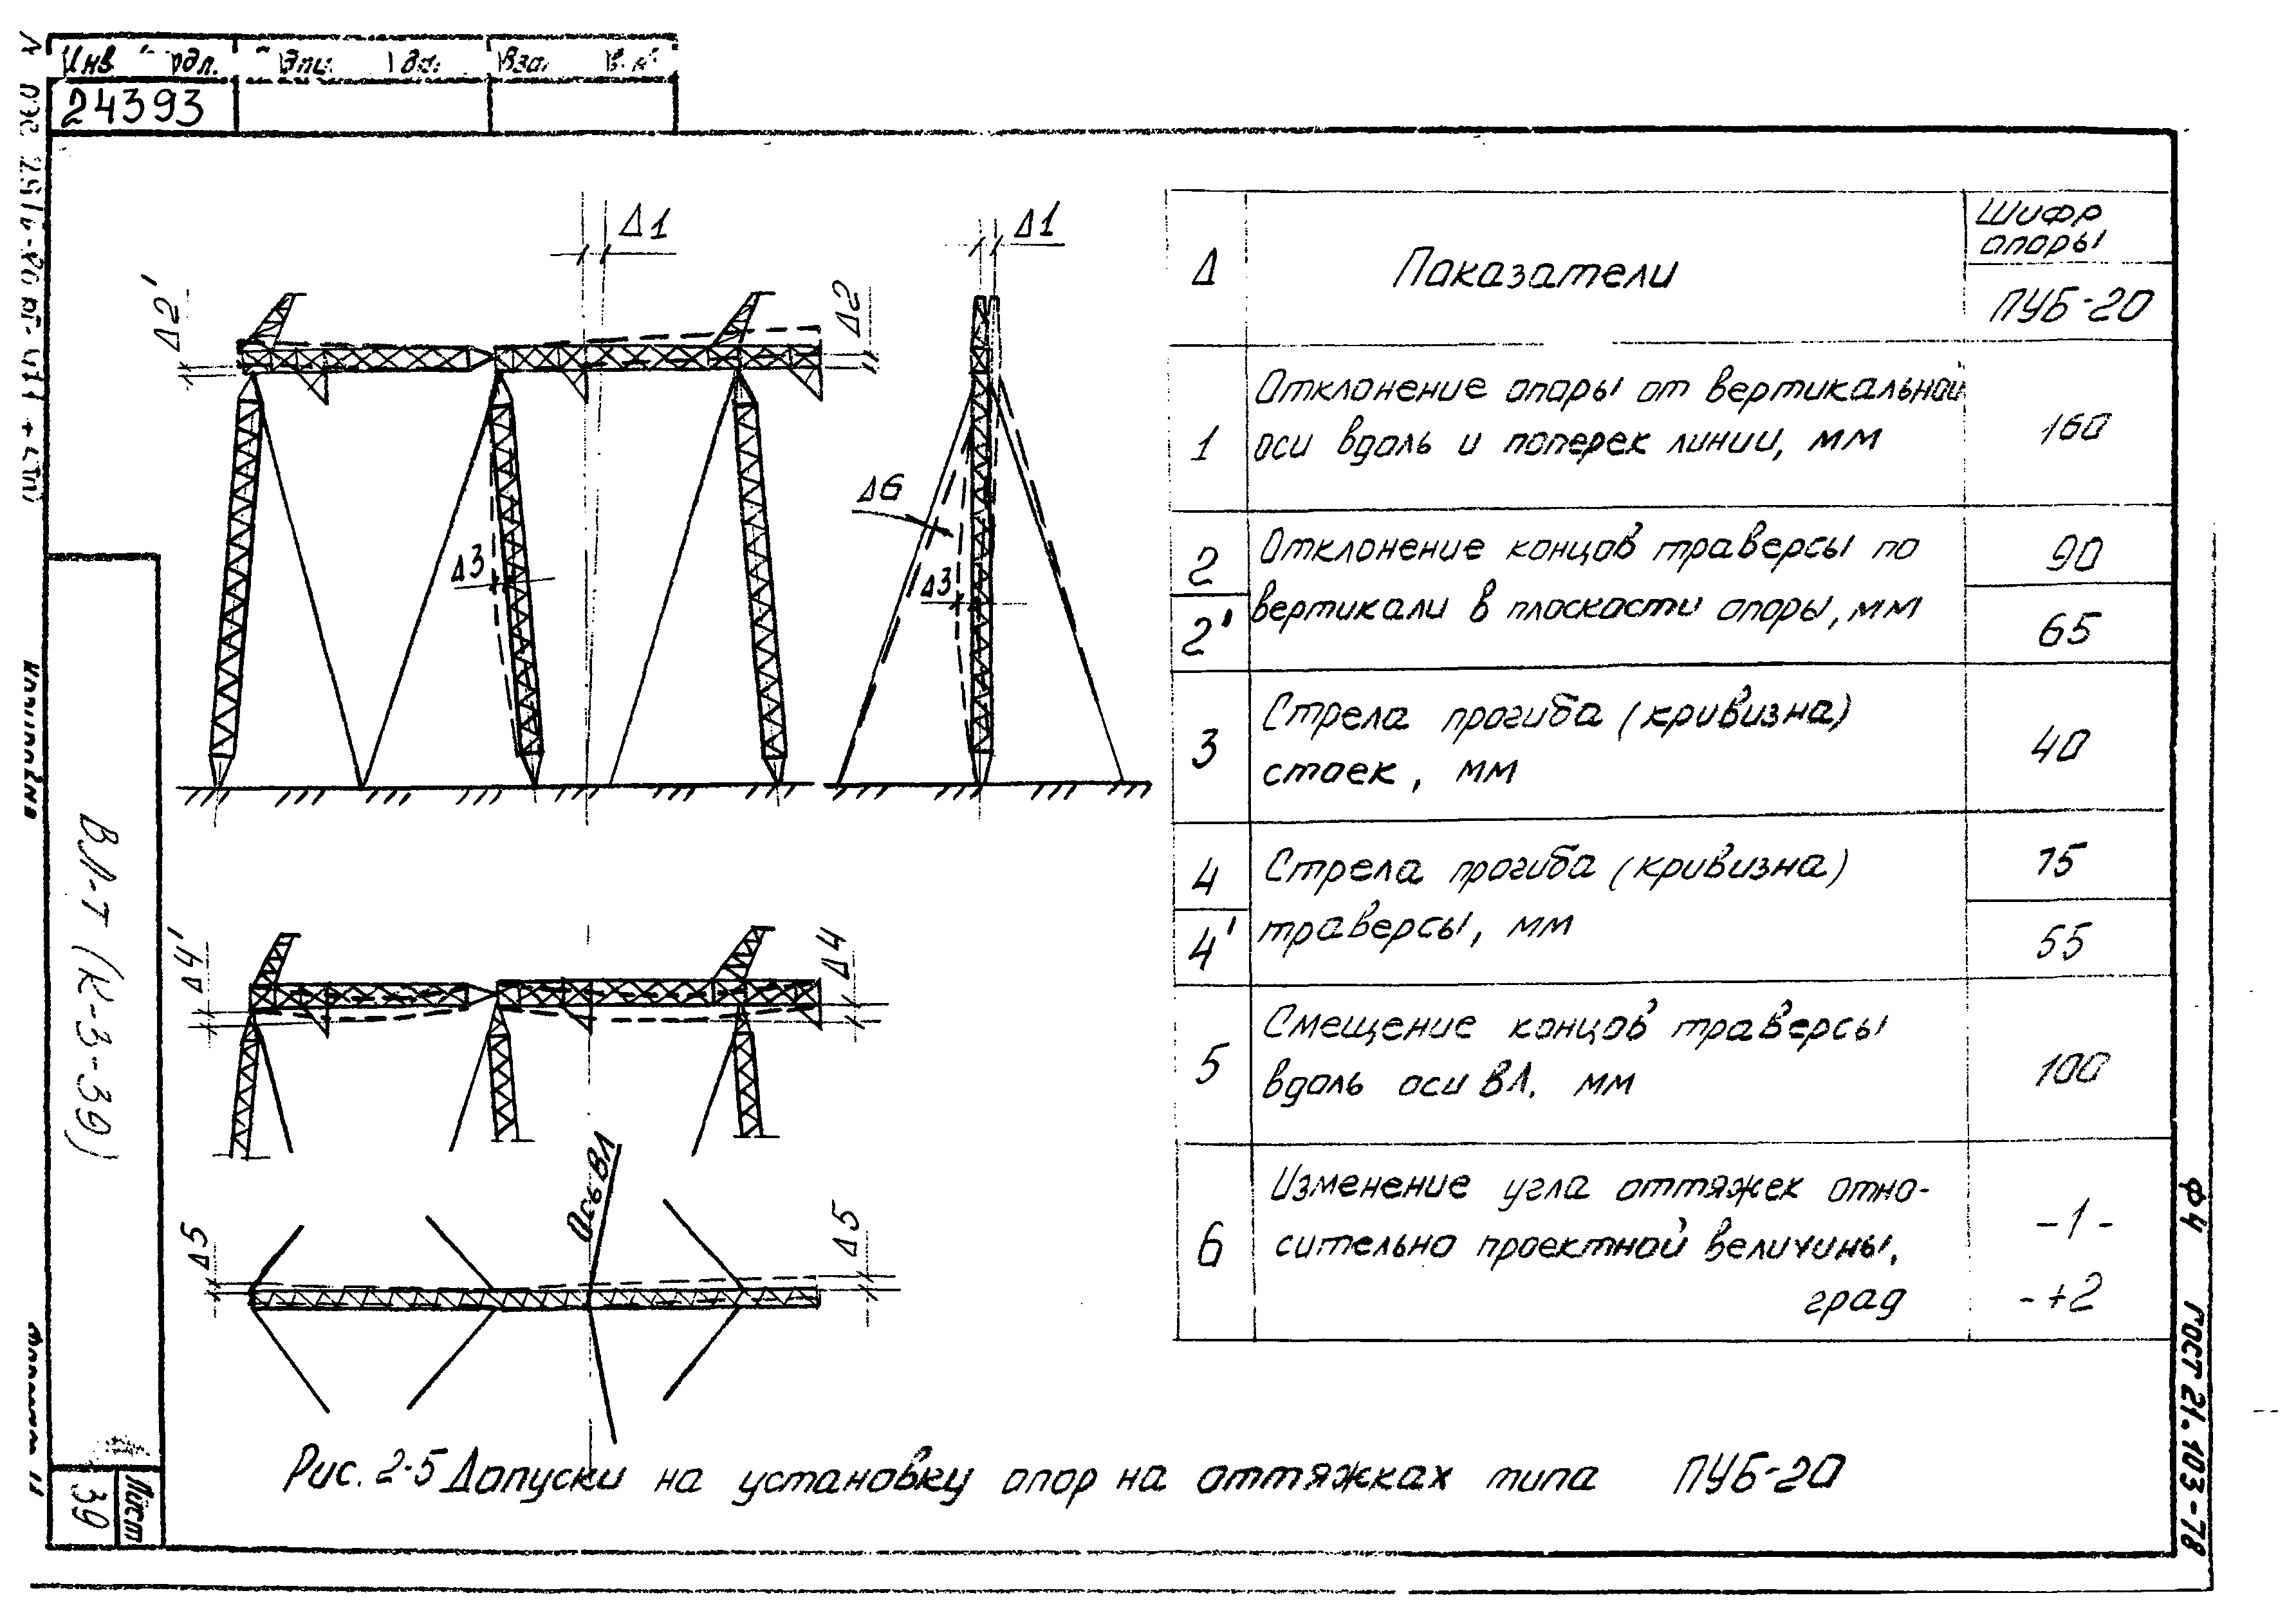 24393
Δ1
Δ1
Δ2'
Δ2
Δ6
Δ3
Δ3
Δ4'
Δ4
Ось ВЛ
Δ5
Δ5
Δ
Показатели
Шифр
опоры
ПУБ-20
1
Отклонение опоры от вертикальной
оси вдоль и поперек линии, мм
160
2
2'
Отклонение концов траверсы по
вертикали в плоскости опоры, мм
90
65
3
Стрела прогиба (кривизна)
стоек, мм
40
4
4'
Стрела прогиба (кривизна)
траверсы, мм
75
55
5
Смещение концов траверсы
вдоль оси ВЛ. мм
100
6
Изменение угла оттяжек отно-
сительно проектной величины,
град
-1-
-+2
Рис. 2-5 Допуски на установку опор на оттяжках типа ПУБ-20
ВЛ-Т (К-3-39)
Лист
39
Ф4 ГОСТ 21.103-78